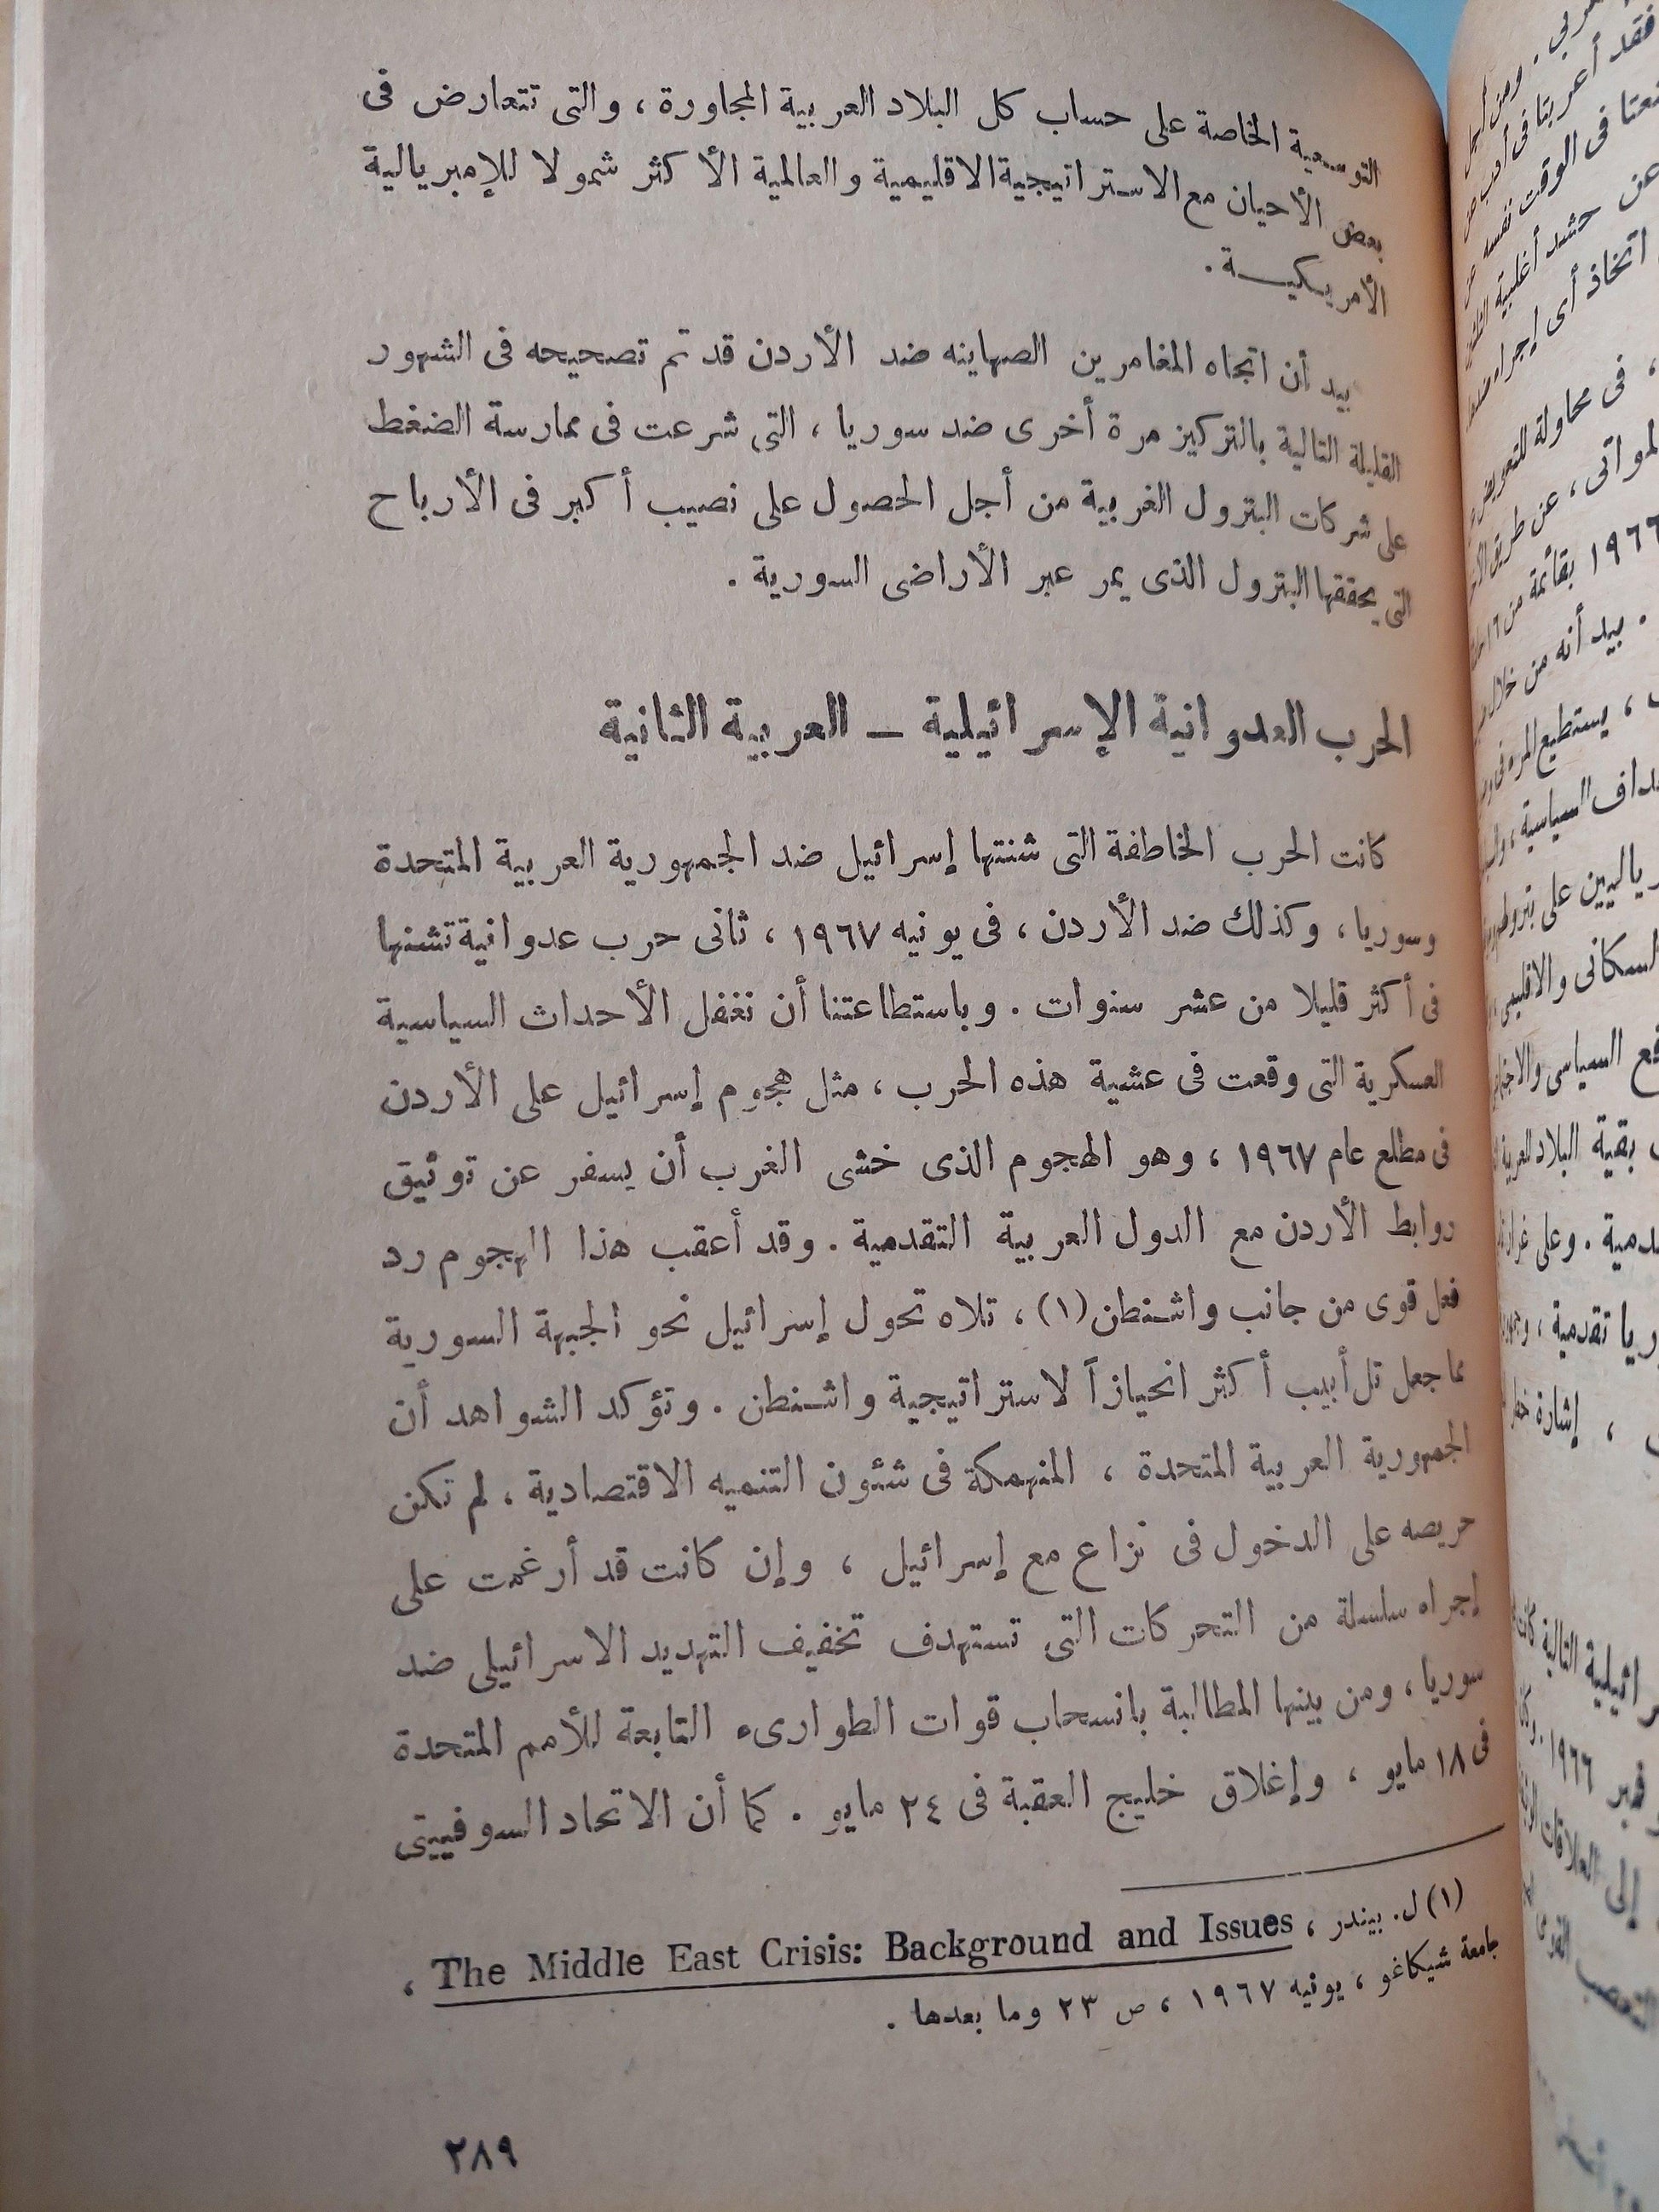 التوسعية الخاصة على حساب كل البلاد العربية المجاورة ، والتى تتعارض فى
بعض الأحيان مع الاستراتيجية الاقليمية والعالمية الأكثر شمولا للإمبريالية
الأمريكيــة .
بيد أن اتجاه المغامرين الصهاينه ضد الأردن قد تم تصحيحه فى الشهور
القليلة التالية بالتركيز مرة أخرى ضد سوريا ، التى شرعت فى ممارسة الضغط
على شركات البترول الغربية من أجل الحصول على نصيب أكبر فى الأرباح
التى يحققها البترول الذى يمر عبر الأراضى السورية .
الحرب العدوانية الإسرائيلية – العربية الثانية
كانت الحرب الخاطفة التى شنتها إسرائيل ضد الجمهورية العربية المتحدة
وسوريا ، وكذلك ضد الأردن ، فى يونيه ١٩٦٧ ، ثانى حرب عدوانية تشنها
فى أكثر قليلا من عشر سنوات . وباستطاعتنا أن نغفل الأحداث السياسية
العسكرية التى وقعت فى عشية هذه الحرب ، مثل هجوم إسرائيل على الأردن
فى مطلع عام ١٩٦٧ ، وهو الهجوم الذى خشى الغرب أن يسفر عن توثيق
روابط الأردن مع الدول العربية التقدمية . وقد أعقب هذا الهجوم رد
فعل قوى من جانب واشنطن (١) ، تلاه تحول إسرائيل نحو الجبهة السورية
مما جعل تل أبيب أكثر انحيازاً لاستراتيجية واشنطن . وتؤكد الشواهد أن
الجمهورية العربية المتحدة ، المنهمكة فى شئون التنميه الاقتصادية ، لم تكن
حريصه على الدخول فى نزاع مع إسرائيل ، وإن كانت قد أرغمت على
إجراء سلسلة من التحركات التى تستهدف تخفيف التهديد الاسرائيلى ضد
سوريا ، ومن بينها المطالبة بانسحاب قوات الطوارىء التابعة للأمم المتحدة
فى ١٨ مايو ، وإغلاق خليج العقبة فى ٢٤ مايو . كما أن الاتحاد السوفييتى
(١) ل. بيندر ، The Middle East Crisis: Background and Issues ،
جامعة شيكاغو ، يونيه ١٩٦٧ ، ص ٢٣ وما بعدها .
٢٨٩